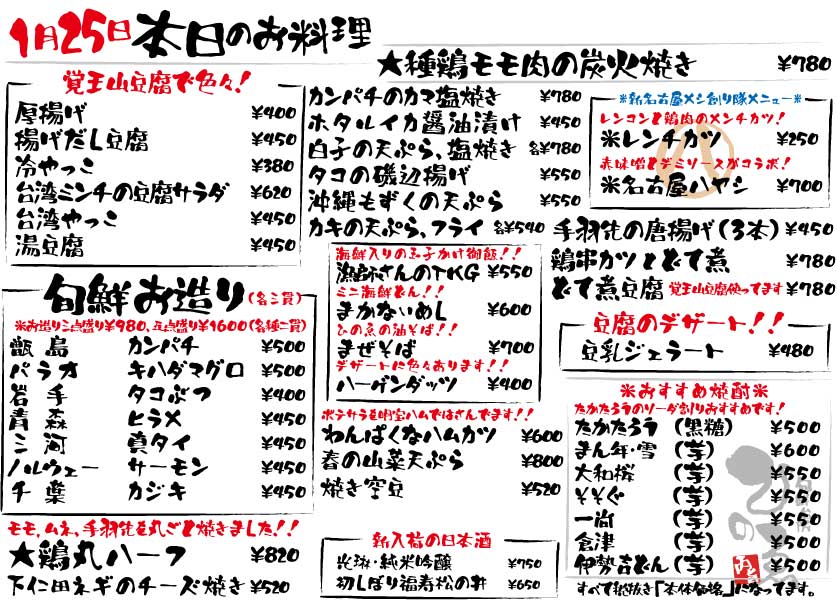 1月25日本日のお料理
覚王山豆腐で色々!
厚揚げ ¥400
揚げだし豆腐 ¥450
冷やっこ ¥380
台湾ミンチの豆腐サラダ ¥620
台湾やっこ ¥450
湯豆腐 ¥450
旬鮮お造り(各三貫)
※お造り三点盛り¥980、五点盛り¥1600(各種二貫)
甑島 カンパチ ¥500
パラオ キハダマグロ ¥500
岩手 タコぶつ ¥400
青森 ヒラメ ¥450
三河 真タイ ¥450
ノルウェー サーモン ¥450
千葉 カジキ ¥450
モモ、ムネ、手羽先を丸ごと焼きました!!
★鶏丸ハーフ ¥820
下仁田ネギのチーズ焼き ¥520
★種鶏モモ肉の炭火焼き ¥780
カンパチのカマ塩焼き ¥780
ホタルイカ醤油漬け ¥450
白子の天ぷら、塩焼き 各¥780
タコの磯辺揚げ ¥550
沖縄もずくの天ぷら ¥550
カキの天ぷら、フライ 各¥540
海鮮入りの玉子かけ御飯!!
漁師さんのTKG ¥550
ミニ海鮮どん!!
まかないめし ¥600
ひの魚の油そば!!
まぜそば ¥700
デザートに色々あります!!
ハーゲンダッツ ¥400
ポテサラを明宝ハムではさんでます!!
わんぱくなハムカツ ¥600
春の山菜天ぷら ¥800
焼き空豆 ¥520
新入荷の日本酒
純米吟醸 ¥750
初しぼり福寿松の井 ¥650
※新名古屋メシ創り隊メニュー※
レンコンと鶏肉のメンチカツ!
※レンチカツ ¥250
赤味噌とデミソースがコラボ!
※名古屋ハヤシ ¥700
手羽先の唐揚げ(3本) ¥450
鶏串カツとどて煮 ¥780
どて煮豆腐 覚王山豆腐使ってます ¥780
豆腐のデザート!!
豆乳ジェラート ¥480
※おすすめ焼酎※
たかたろうのソーダ割りおすすめです!
たかたろう (黒糖) ¥500
まん年・雪 (芋) ¥600
大和桜 (芋) ¥550
そそぐ (芋) ¥550
一尚 (芋) ¥550
倉津 (芋) ¥550
伊勢吉どん (芋) ¥500
すべて税抜き「本体価格」になってます。